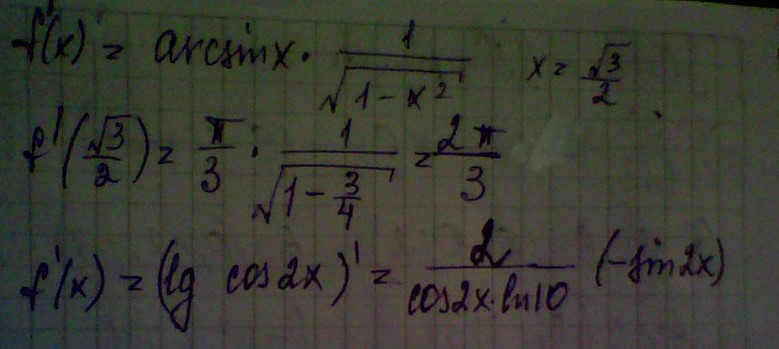 f'(x) = arcsinx · 1/√(1-x²) x = √3/2
f'(√3/2) = π/3 · 1/√(1-3/4) = 2π/3
f'(x) = (lg cos2x)' = 2/(cos2x·ln10) (-sin2x)